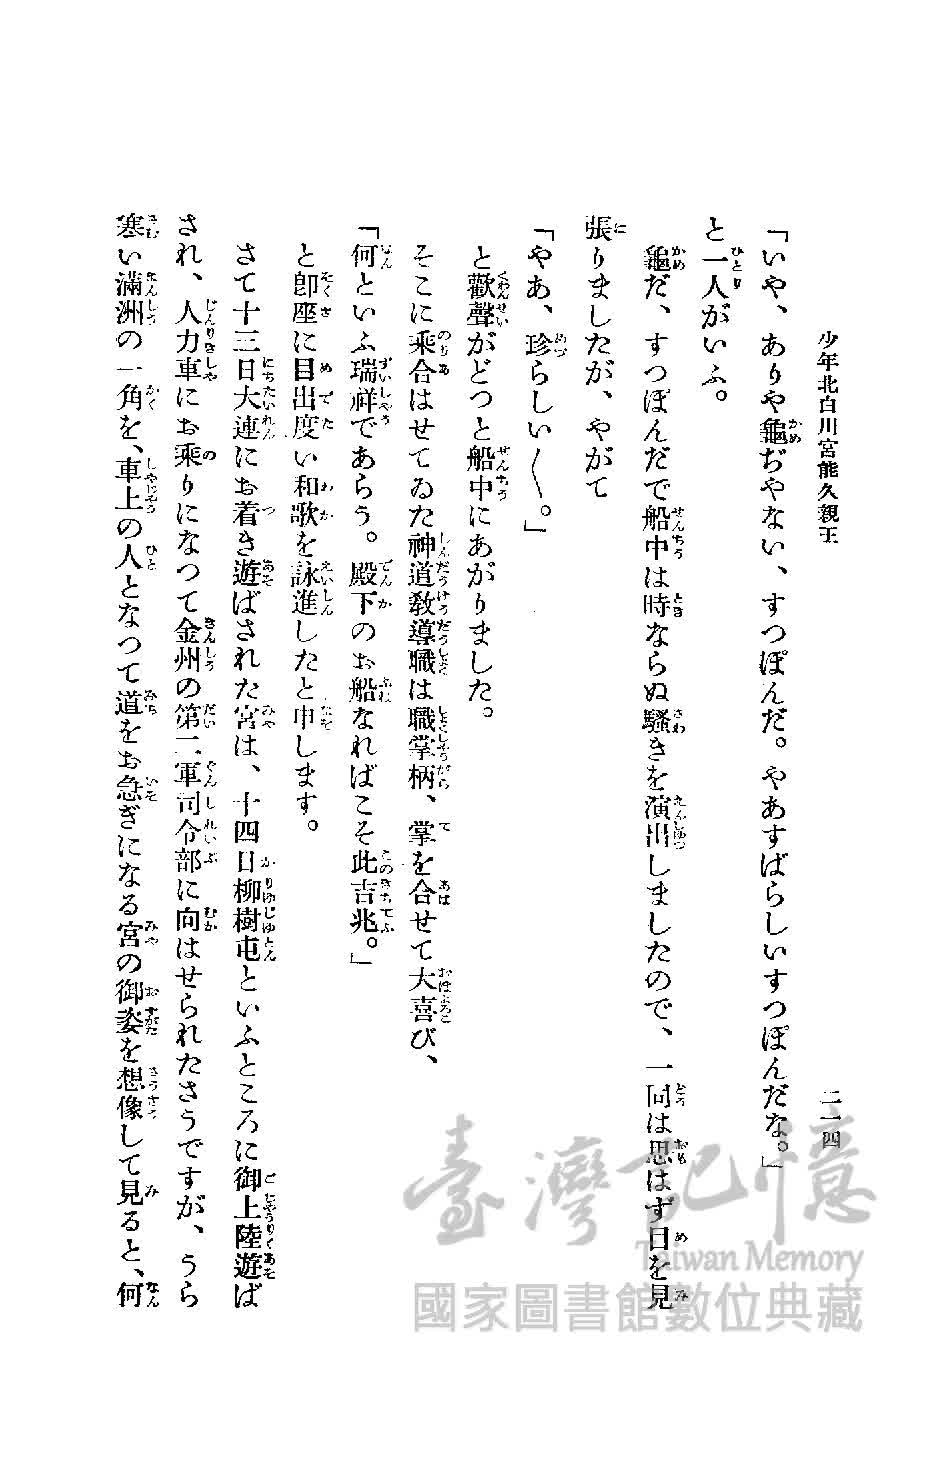 少年北白川宮能久親王
二一四
「いや、ありや龜ぢやない、すつぽんだ。やあすばらしいすつぽんだな。」
と一人がいふ。
龜だ、すつぽんだで船中は時ならぬ騷きを演出しましたので、一同は思はず目を見
張りましたが、やがて
「やあ、珍らしい〱。」
と歡聲がどつと船中にあがりました。
そこに乘合はせてゐた神道敎導職は職掌柄、掌を合せて大喜び、
「何といふ瑞祥であらう。殿下のお船なればこそ此吉兆。」
と卽座に目出度い和歌を詠進したと申します。
さて十三日大連にお着き遊ばされた宮は、十四日柳樹屯といふところに御上陸遊ば
され、人力車にお乘りになつて金州の第二軍司令部に向はせられたさうですが、うら
寒い滿洲の一角を、車上の人となつて道をお急ぎになる宮の御姿を想像して見ると、何
臺灣記憶
Taiwan Memory
國家圖書館數位典藏